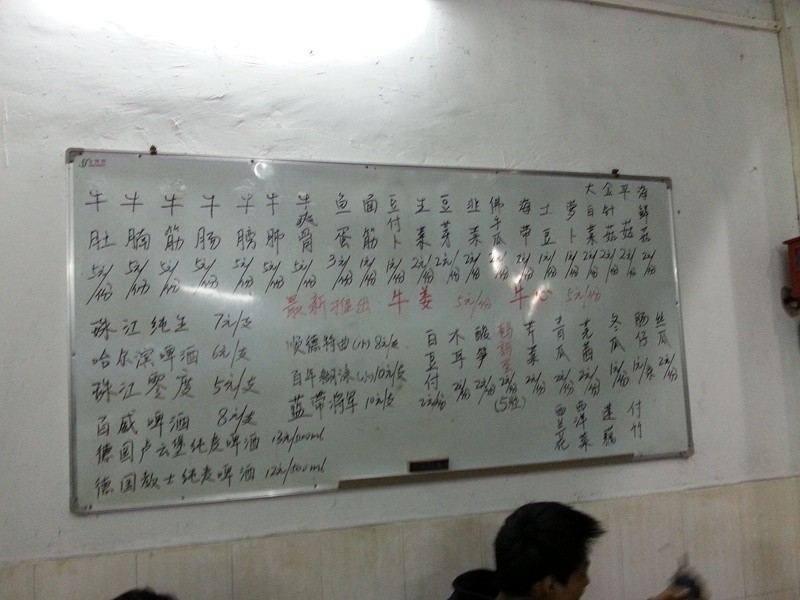 牛肚 5元/份
牛腩 5元/份
牛筋 5元/份
牛肠 5元/份
牛膀 5元/份
牛肺 5元/份
牛爽骨 5元/份
鱼蛋 3元/份
面筋 1元/份
豆付卜 1元/份
生菜 2元/份
豆芽 2元/份
韭菜 2元/份
佛手瓜 2元/份
海带 2元/份
土豆 1元/份
萝卜 1元/份
大白菜 2元/份
金针菇 2元/份
平菇 2元/份
海鲜菇 2元/份
最新推出 牛姜 5元/份 牛心 5元/份
珠江纯生 7元/支
哈尔滨啤酒 6元/支
珠江零度 5元/支
百威啤酒 8元/支
德国卢云堡纯麦啤酒 13元/500ml
德国教士纯麦啤酒 12元/500ml
顺德特曲(小) 8元/支
百年糊涂(小) 10元/支
蓝带将军 10元/支
白豆付 2元/份
木耳 2元/份
酸笋 2元/份
鹌鹑蛋 (5粒)
芹菜 2元/份
青瓜 2元/份
茼 2元/份
冬瓜 1元/份
肠仔 1元/条
丝瓜 2元/份
西兰花
西洋菜
莲藕
付竹